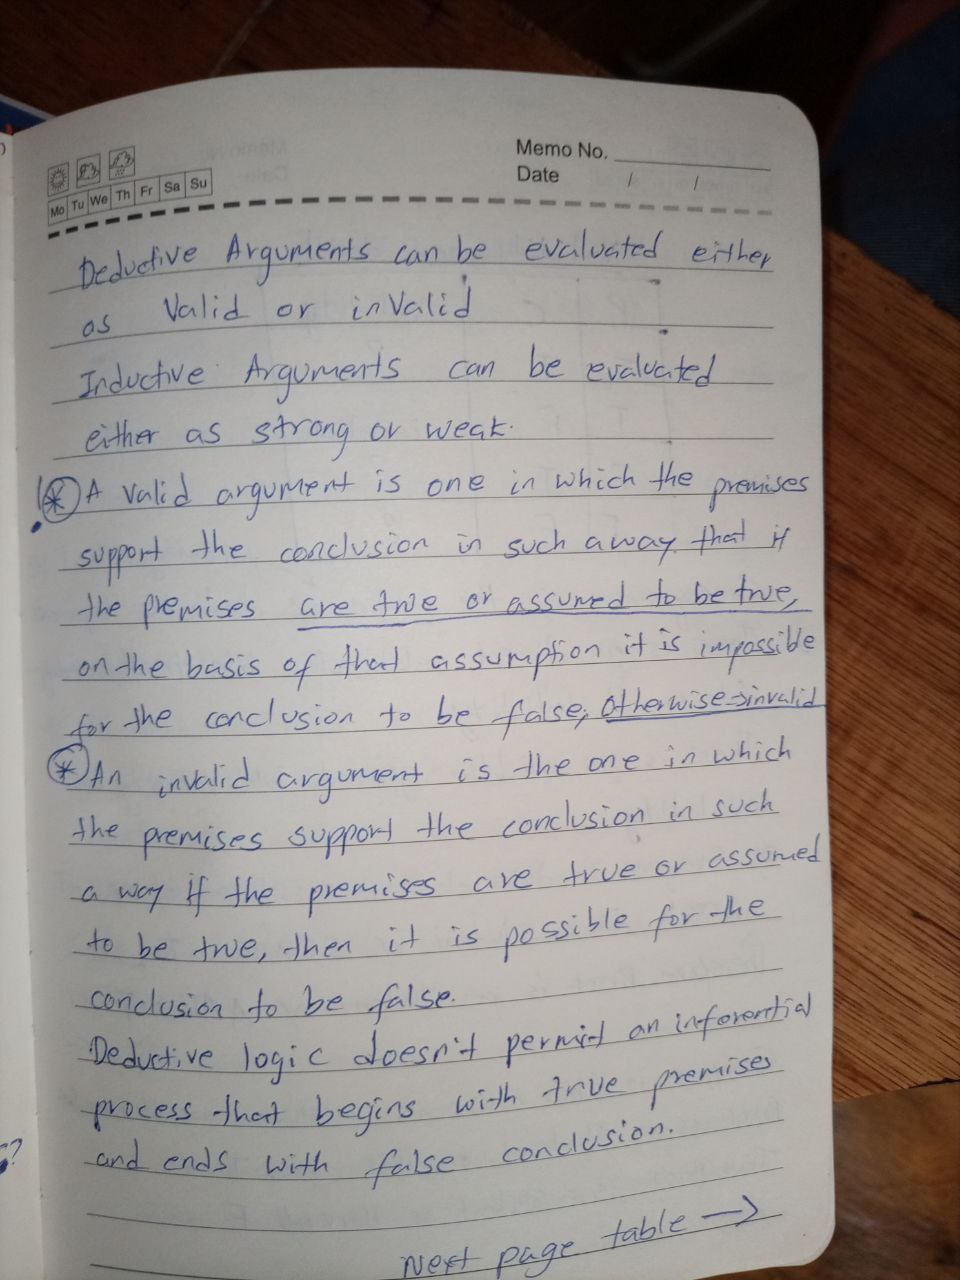 Memo No.
Date / /
Mo Tu We Th Fr Sa Su
Deductive Arguments can be evaluated either
as Valid or inValid
Inductive Arguments can be evaluated
either as strong or weak.
A valid argument is one in which the premises
support the conclusion in such a way that if
the premises are true or assumed to be true,
on the basis of that assumption it is impossible
for the conclusion to be false; otherwise → invalid
An invalid argument is the one in which
the premises support the conclusion in such
a way if the premises are true or assumed
to be true, then it is possible for the
conclusion to be false.
Deductive logic doesn't permit an inferential
process that begins with true premises
and ends with false conclusion.
Next page table →